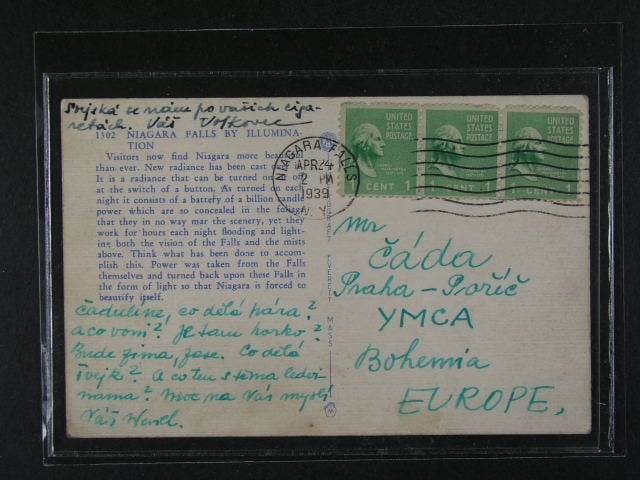 Stýská se nám po vašich ciga-
retách. Váš Voskovec
1302 NIAGARA FALLS BY ILLUMINA-
TION
Visitors now find Niagara more beautiful
than ever. New radiance has been cast
It is a radiance that can be turned on
at the switch of a button. As turned on each
night it consists of a battery of a billion candle
power which are so concealed in the foliage
that they in no way mar the scenery, yet they
work for hours each night flooding and light-
ing both the vision of the Falls and the mists
above. Think what has been done to accom-
plish this. Power was taken from the Falls
themselves and turned back upon these Falls in
the form of light so that Niagara is forced to
beautify itself.
Čaduline, co dělá pára?
a co voni? Je tam horko?
Bude zima, zase. Co dělá
Švejk? A co ten s těma ledvi-
nama? Moc na Vás myslí
Váš
NIAGARA FALLS
APR 24
2 PM
1939
N. Y.
UNITED STATES POSTAGE
1 CENT 1
UNITED STATES POSTAGE
1 CENT 1
UNITED STATES POSTAGE
1 CENT 1
EVERETT MASS
Mr
Čáda
Praha - Poříč
YMCA
Bohemia
EUROPE.